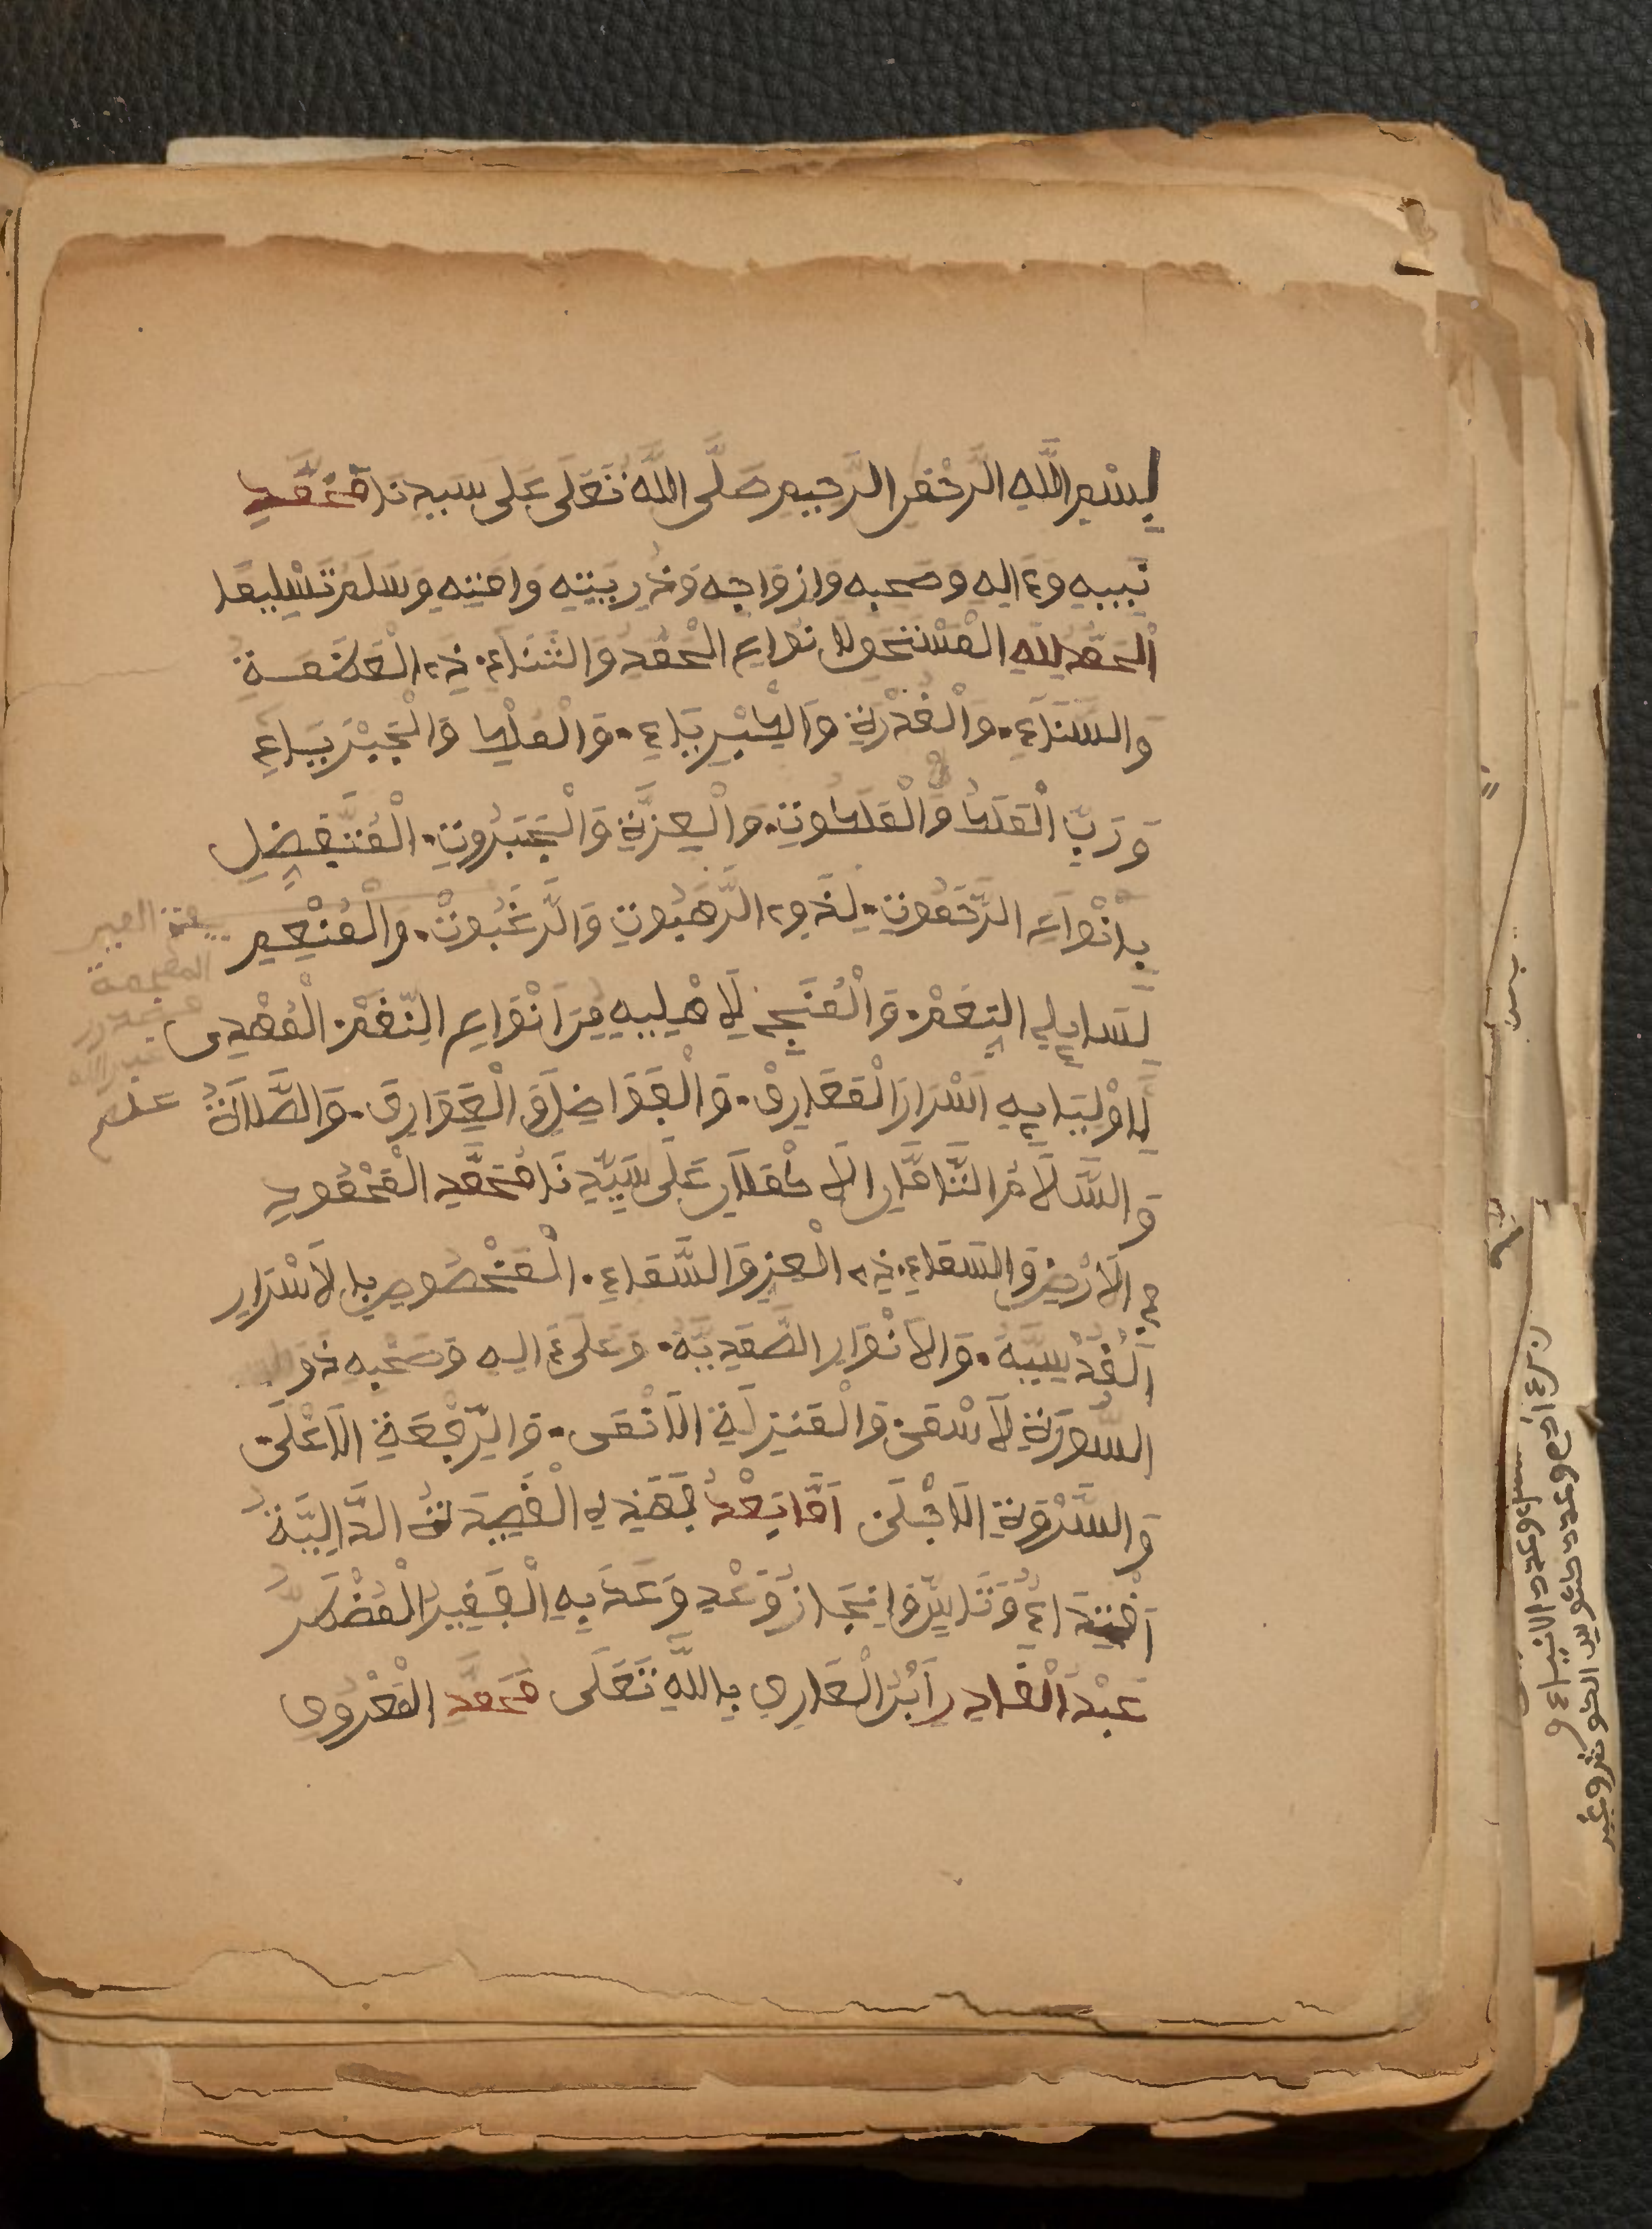 بِسْمِ اللَّهِ الرَّحْمَنِ الرَّحِيمِ صَلَّى اللَّهُ تَعَلَى عَلَى سَيِّدِنَا مُحَمَّدٍ
نَبِيِّهِ وَءَالِهِ وَصَحْبِهِ وَازْوَاجِهِ وَذُرِّيَّتِهِ وَامَّتِهِ وَسَلَّمَ تَسْلِيمًا
الْحَمْدُ لِلَّهِ الْمُسْتَحِقِّ لِانْوَاعِ الْحَمْدِ وَالثَّنَاءِ. ذِي الْعَظَمَةِ
وَالسَّنَاءِ. وَالْقُدْرَةِ وَالْكِبْرِيَاءِ. وَالْمُلْكِ وَالْجَبْرِيَاءِ
وَرَبِّ الْمُلْكِ وَالْمَلَكُوتِ. وَالْعِزَّةِ وَالْجَبَرُوتِ. الْمُتَفَضِّلِ
بِانْوَاعِ الرَّحَمُوتِ. لِذَوِي الرَّهَبُوتِ وَالرَّغَبُوتِ. وَالْمُنْعِمِ
لِسَايِلِي النِّعَمْ. وَالْمُنَجِّ لَاهْلِيهِ مِنَ انْوَاعِ النِّقَمْ. الْمُهْدِي
لِاوْلِيَايِهِ اسْرَارَ الْمَعَارِفْ. وَالْفَوَاضِلَ وَالْعَوَارِفَ. وَالصَّلَاةُ
وَالسَّلَامُ التَّامَّانِ الَاكْمَلَانِ عَلَى سَيِّدِنَا مُحَمَّدٍ الْمَحْمُودِ
فِي الَارْضِ وَالسَّمَاءِ. ذِي الْعِزِّ وَالسَّمَاءِ. الْمَخْصُوصِ بِالَاسْرَارِ
الْقُدْسِيَّةِ. وَالَانْوَارِ الصَّمَدِيَّةِ. وَعَلَى ءَالِهِ وَصَحْبِهِ ذَوِي
السُّورَةِ الَاسْمَى وَالْمَنْزِلَةِ الَانْمَى. وَالرِّفْعَةِ الَاعْلَى
وَالسَّرْوَةِ الَاجْلَى امَّا بَعْدُ فَهَذِهِ الْقَصِيدَةُ الدَّالِيَّةُ
عَبْدُ الْقَادِرِ ابْنُ الْعَارِفِ بِاللَّهِ تَعَلَى مُحَمَّدٍ الْمَعْرُوفِ